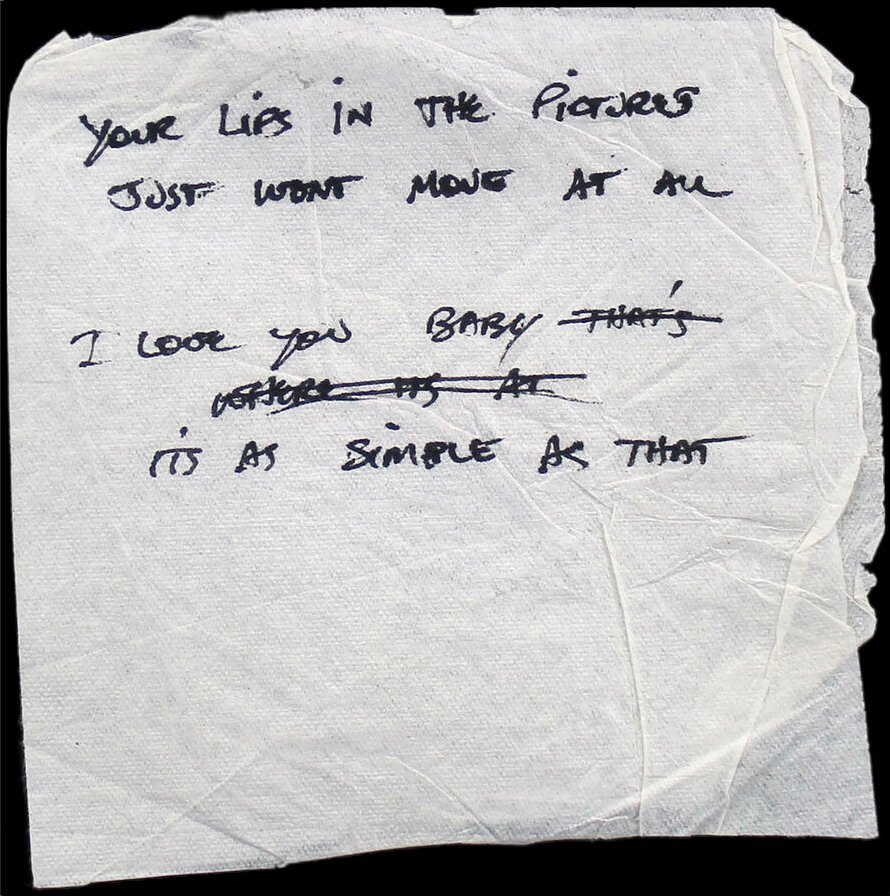 YOUR LIPS IN THE PICTURES
JUST WONT MOVE AT ALL
I LOVE YOU BABY THAT'S
WHERE ITS AT
IT'S AS SIMPLE AS THAT